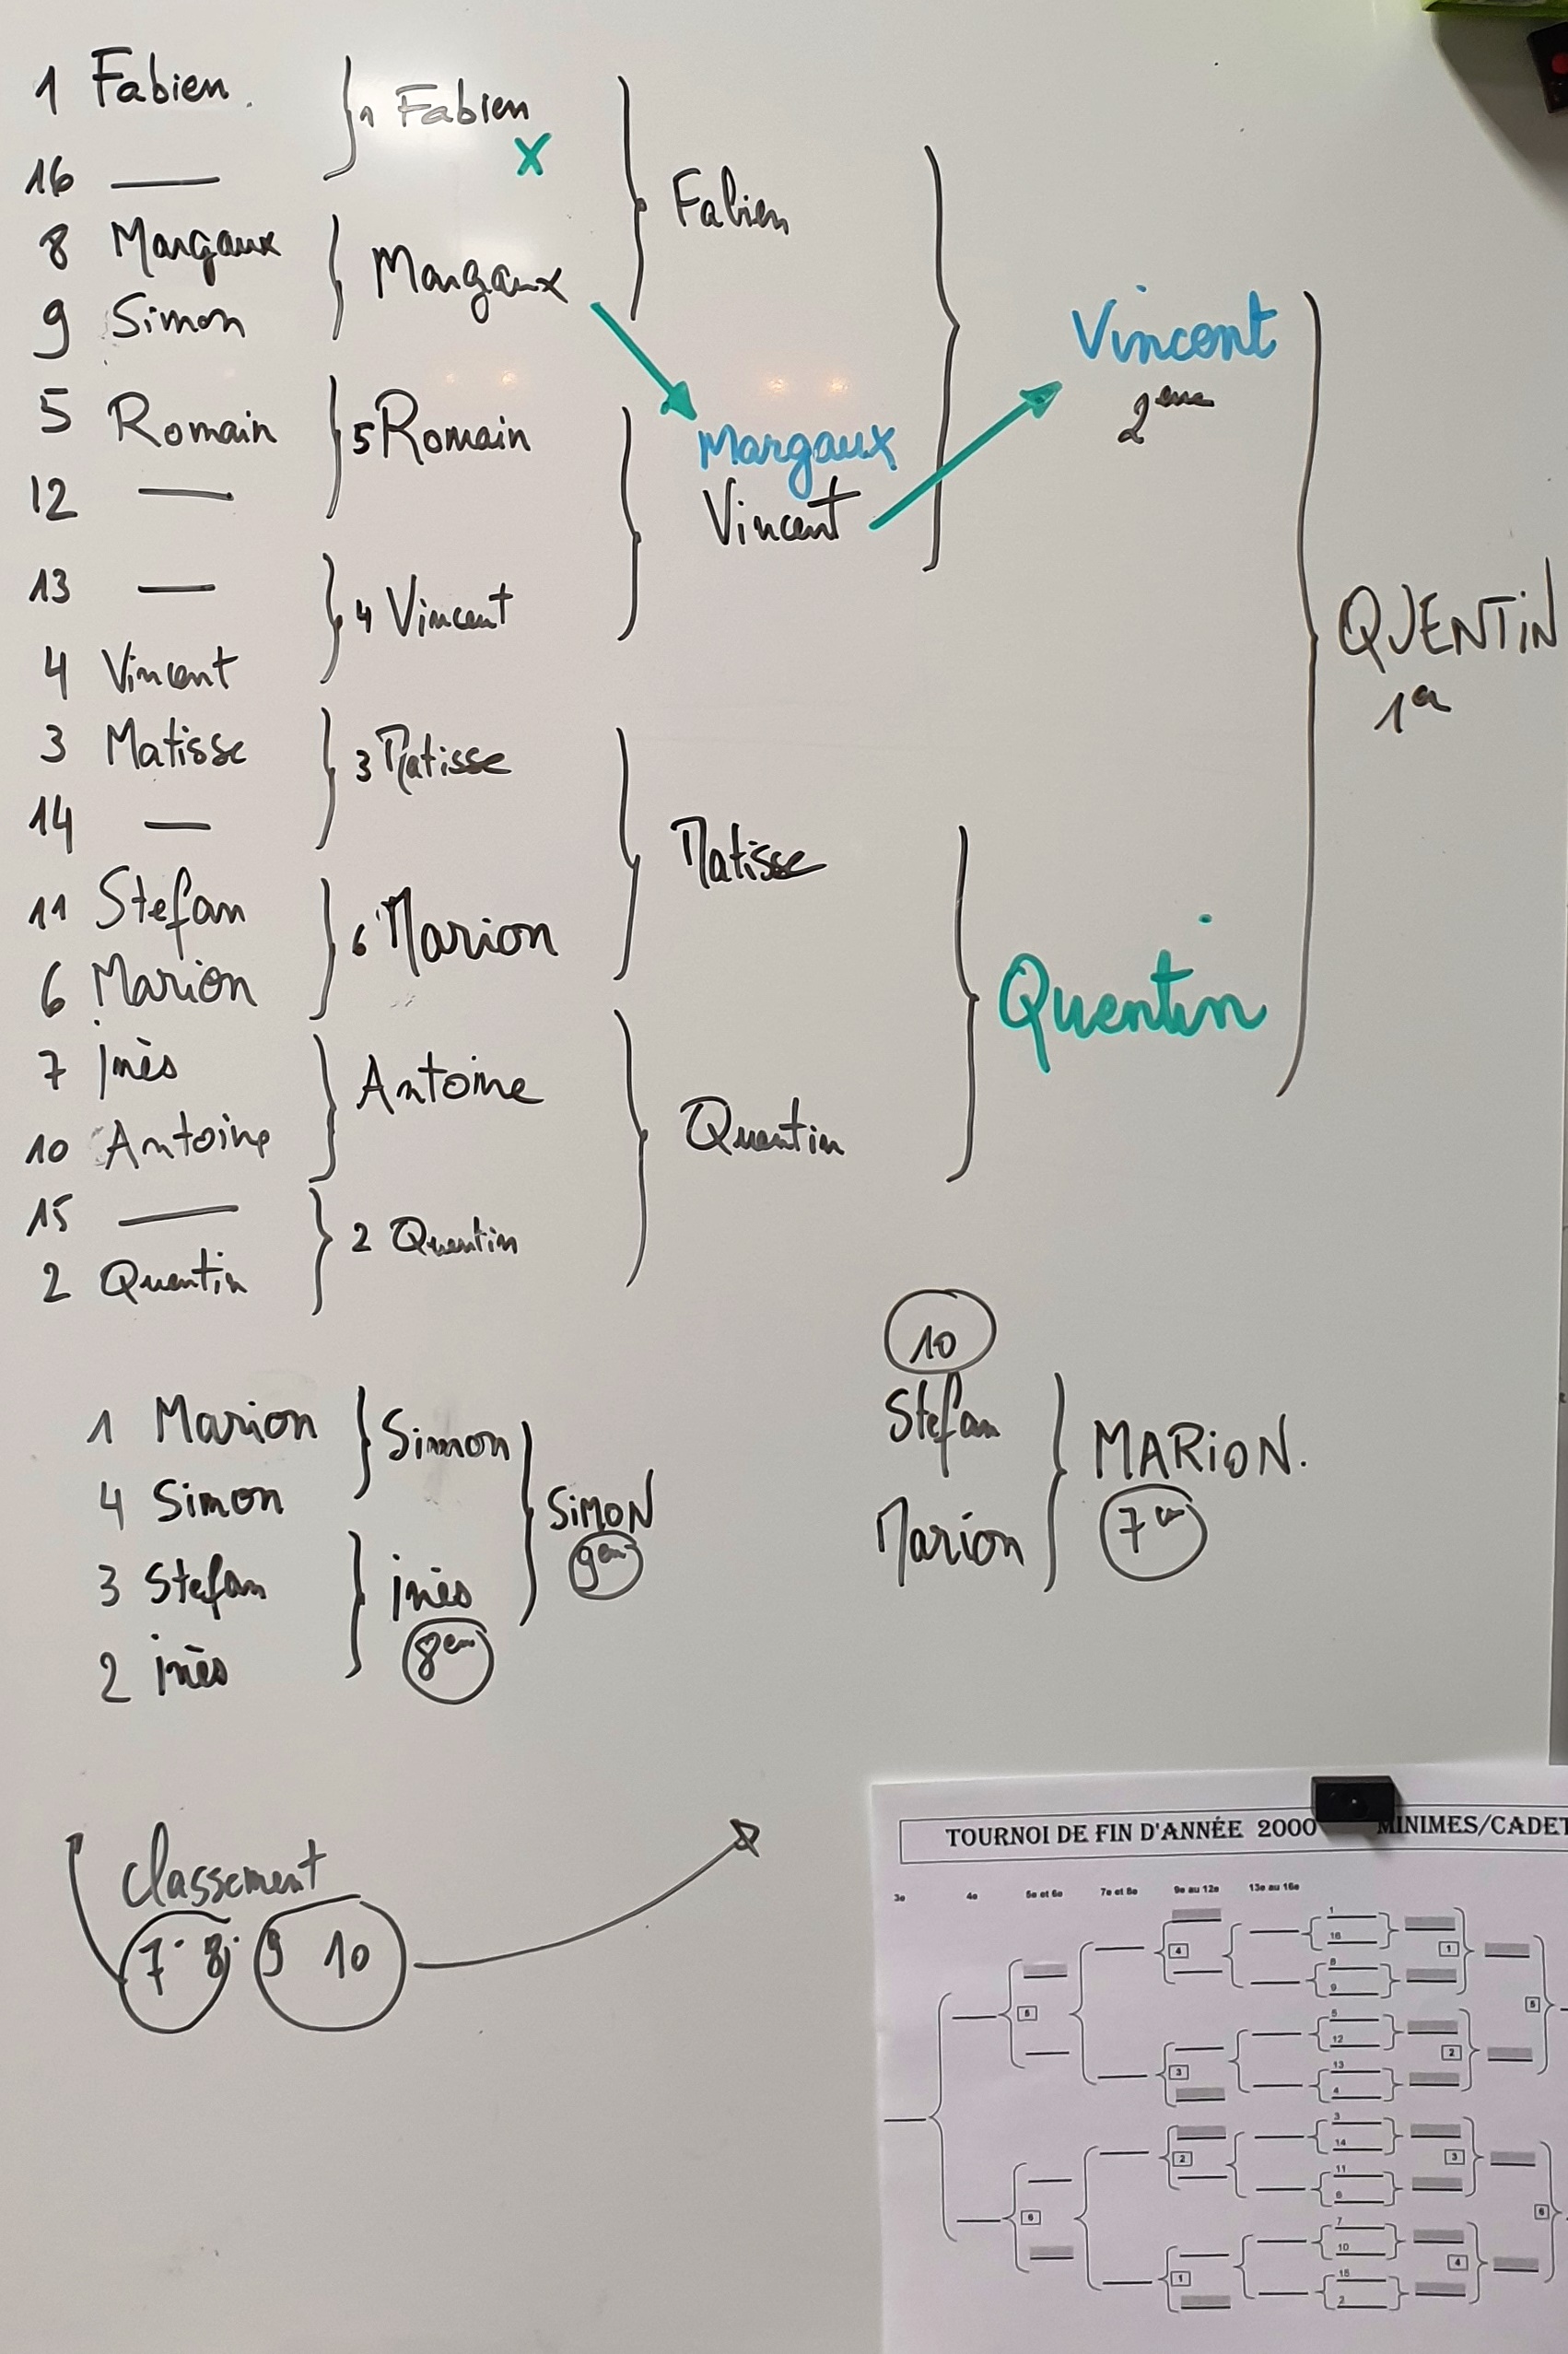 1 Fabien.
16 —
8 Margaux
9 Simon
5 Romain
12 —
13 —
4 Vincent
3 Matisse
14 —
11 Stefan
6 Marion
7 inès
10 Antoine
15 —
2 Quentin
1 Fabien
X
Margaux
5 Romain
4 Vincent
3 Matisse
6 Marion
Antoine
2 Quentin
Fabien
Margaux
Vincent
Matisse
Quentin
Vincent
2eme
Quentin
QUENTiN
1er
1 Marion
4 Simon
3 Stefan
2 inès
Simon
inès
8em
SiMON
9em
10
Stefan
Marion
MARiON.
7em
classement
7 8 9 10
TOURNOI DE FIN D'ANNÉE 2000 MINIMES/CADET
3e 4e 5e et 6e 7e et 8e 9e au 12e 13e au 16e
1
16
8
9
5
12
13
4
3
14
11
6
7
10
15
2
4
3
2
1
5
6
1
2
3
4
5
6